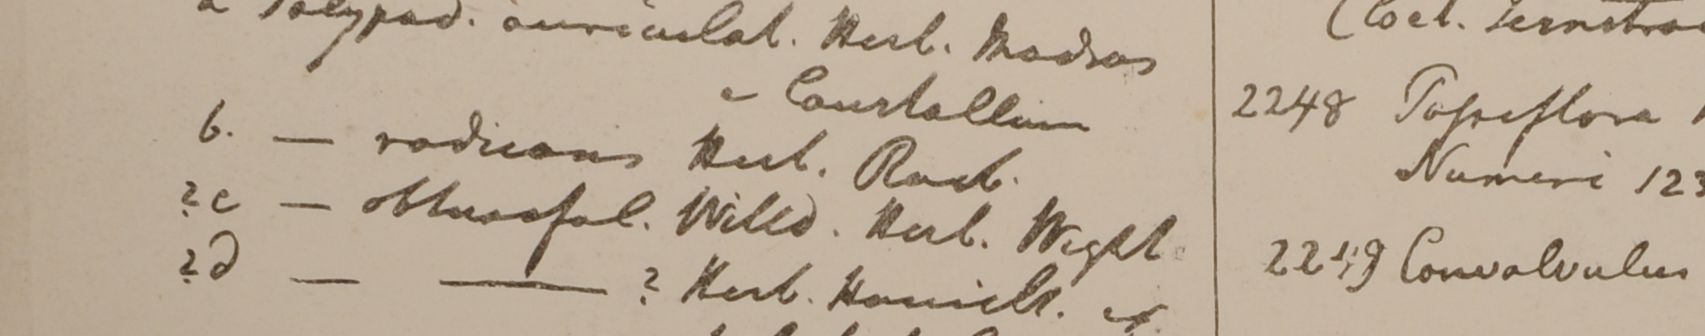 a Polypod. auriculat. Herb. Madras
e Courtallum
b. — radicans Herb. Roxb.
?c — obtusifol. Willd. Herb. Wight
?d — — ? Herb. Hamilt. et
2248 Passiflora
Numeri 123
2249 Convolvulus